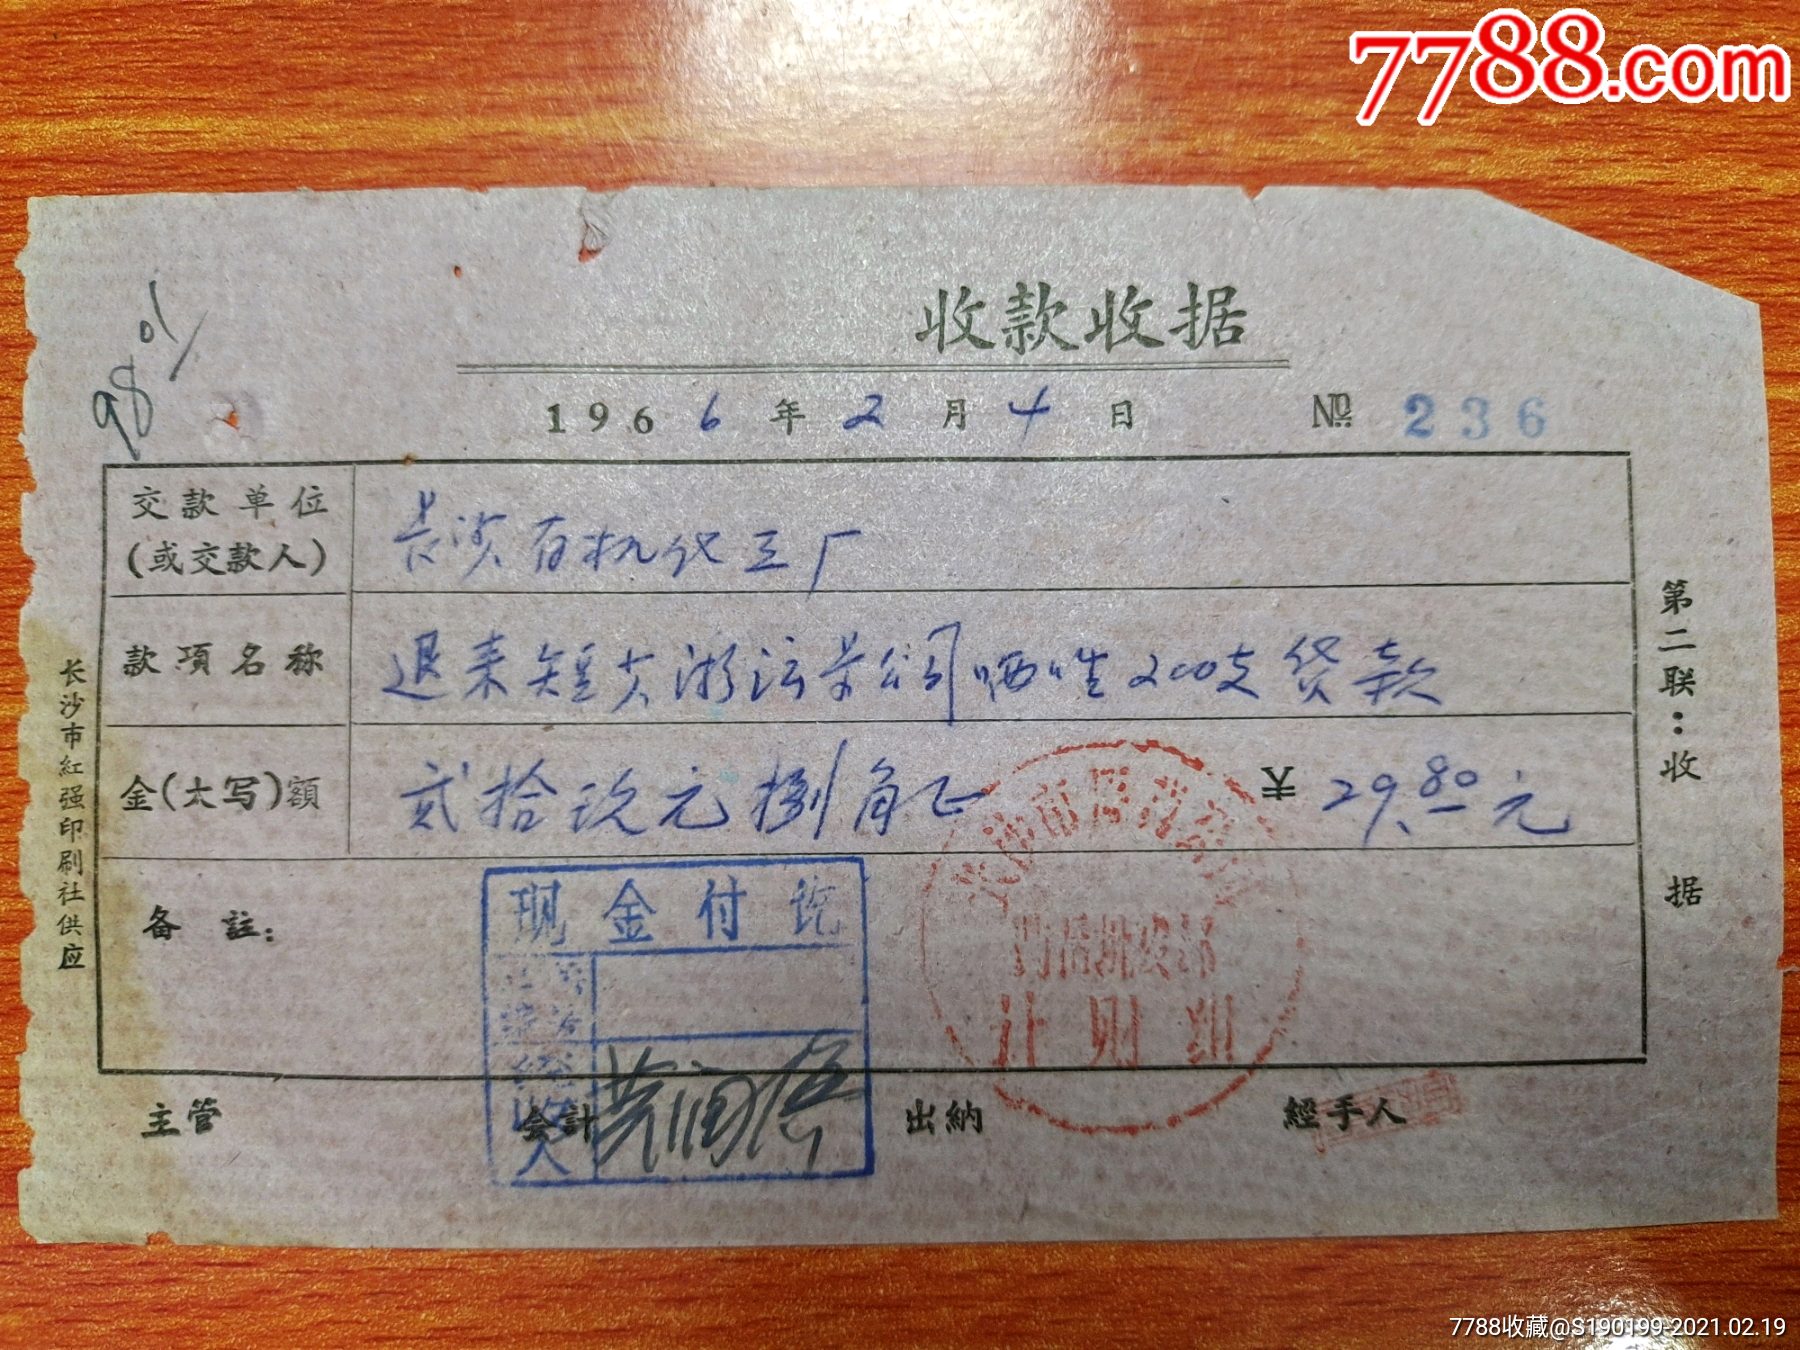 7788.com
收款收据
1966年2月4日
№ 236
9801
交款单位
(或交款人)
长沙有机化工厂
款項名称
退来短少
公司
200支货款
金(大写)額
贰拾玖元捌角正
29.80元
备註:
现金付讫
收
人
长沙市
门市批发部
计财组
主管
会計
出納
經手人
第二联:收据
长沙市紅强印刷社供应
7788收藏@S190199-2021.02.19